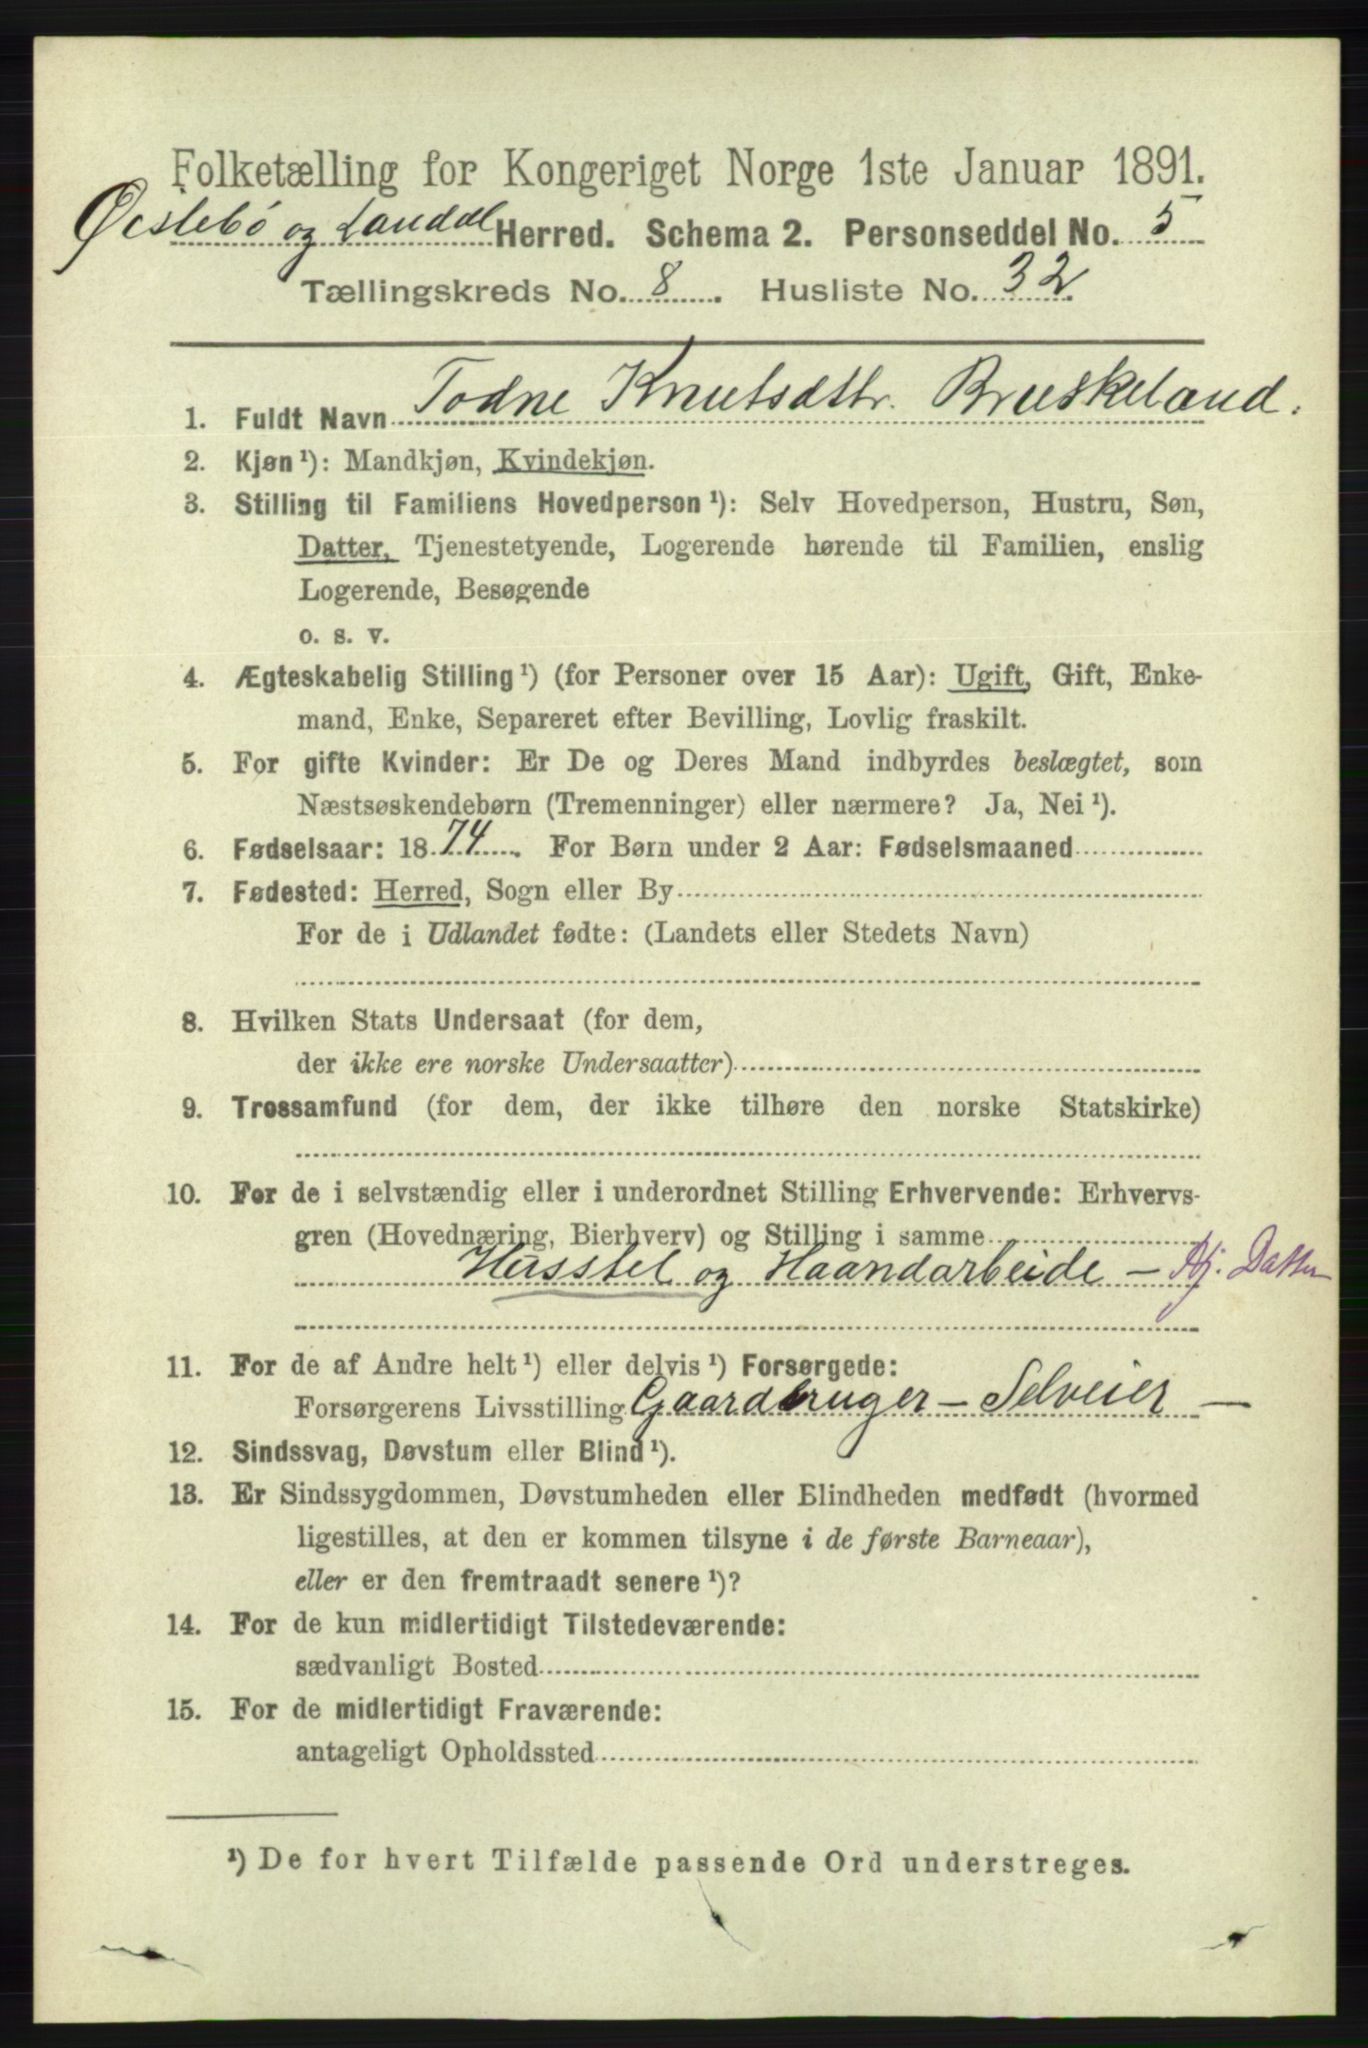 Folketælling for Kongeriget Norge 1ste Januar 1891.
Øislebø og Laudal Herred. Schema 2. Personseddel No. 5
Tællingskreds No. 8. Husliste No. 32
1. Fuldt Navn Todne Knutsdttr. Bruskeland.
2. Kjøn¹): Mandkjøn, Kvindekjøn.
3. Stilling til Familiens Hovedperson¹): Selv Hovedperson, Hustru, Søn,
Datter, Tjenestetyende, Logerende hørende til Familien, enslig
Logerende, Besøgende
o. s. v.
4. Ægteskabelig Stilling¹) (for Personer over 15 Aar): Ugift, Gift, Enke-
mand, Enke, Separeret efter Bevilling, Lovlig fraskilt.
5. For gifte Kvinder: Er De og Deres Mand indbyrdes beslægtet, som
Næstsøskendebørn (Tremenninger) eller nærmere? Ja, Nei¹).
6. Fødselsaar: 1874. For Børn under 2 Aar: Fødselsmaaned
7. Fødested: Herred, Sogn eller By
For de i Udlandet fødte: (Landets eller Stedets Navn)
8. Hvilken Stats Undersaat (for dem,
der ikke ere norske Undersaatter)
9. Trossamfund (for dem, der ikke tilhøre den norske Statskirke)
10. For de i selvstændig eller i underordnet Stilling Erhvervende: Erhvervs-
gren (Hovednæring, Bierhverv) og Stilling i samme
Husstel og Haandarbeide - Hj. Datter
11. For de af Andre helt¹) eller delvis¹) Forsørgede:
Forsørgerens Livsstilling Gaardbruger - Selveier -
12. Sindssvag, Døvstum eller Blind¹).
13. Er Sindssygdommen, Døvstumheden eller Blindheden medfødt (hvormed
ligestilles, at den er kommen tilsyne i de første Barneaar),
eller er den fremtraadt senere¹)?
14. For de kun midlertidigt Tilstedeværende:
sædvanligt Bosted
15. For de midlertidigt Fraværende:
antageligt Opholdssted
¹) De for hvert Tilfælde passende Ord understreges.